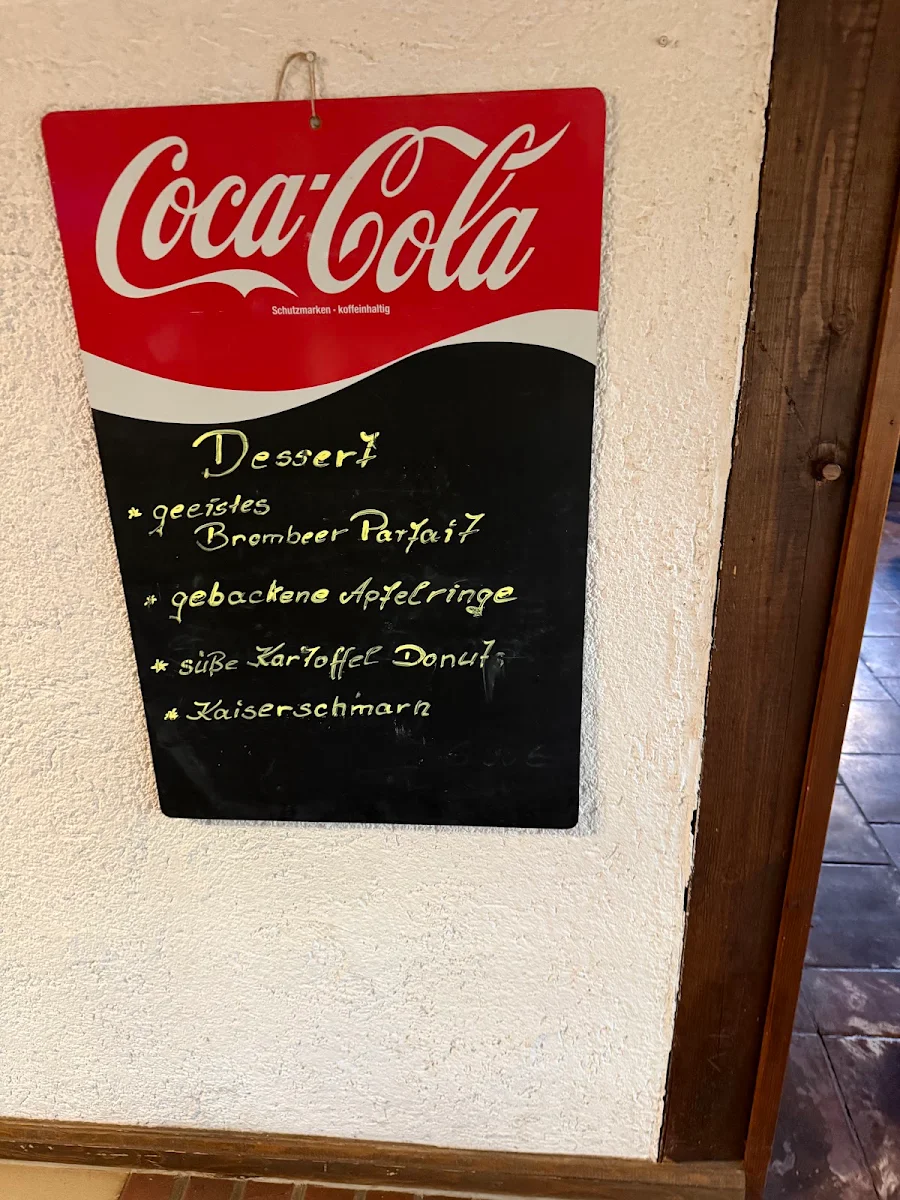 Coca-Cola
Schutzmarken - koffeinhaltig
Dessert
* geeistes
Brombeer Parfait
* gebackene Apfelringe
* süße Kartoffel Donuts
* Kaiserschmarn